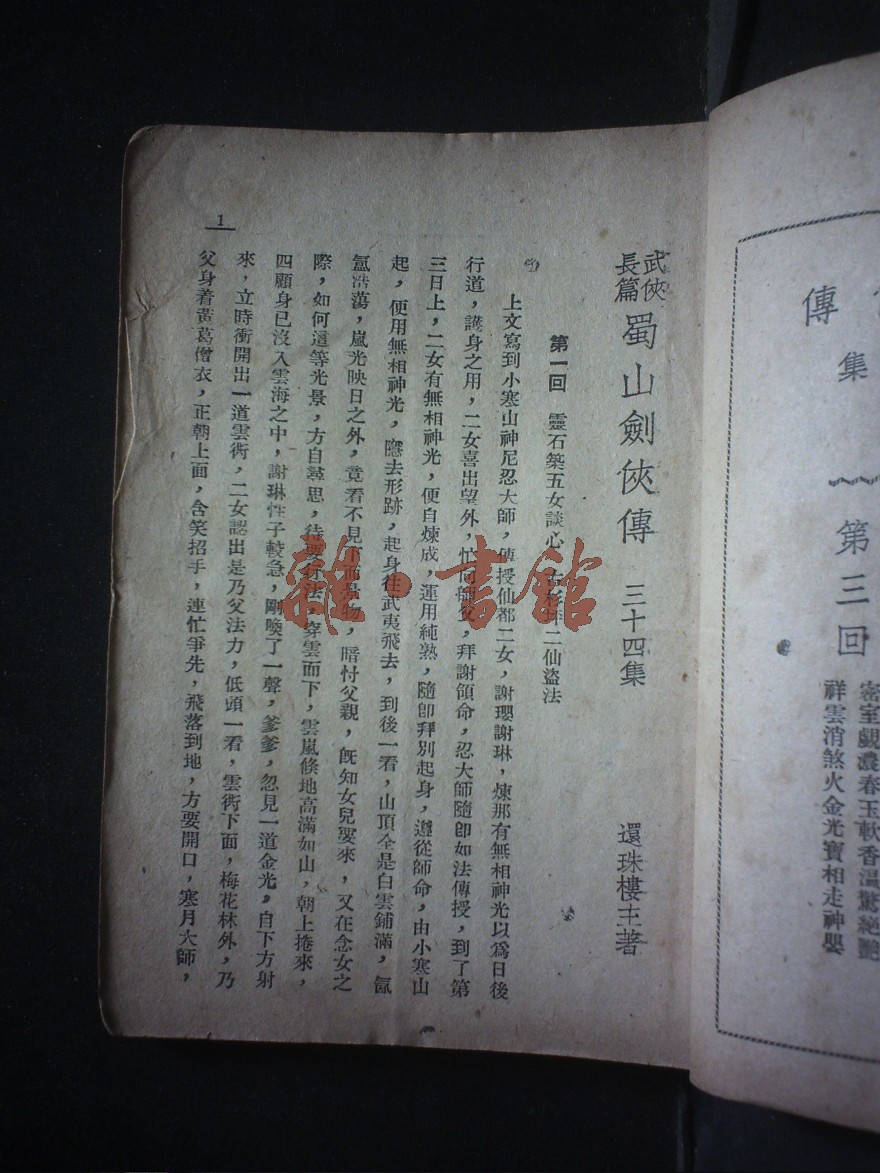 傳
集
第三回
密室覷濃春玉軟香溫驚絕艷
祥雲消煞火金光寶相走神嬰
武俠
長篇
蜀山劍俠傳 三十四集
還珠樓主著
第一回 靈石築五女談心 二仙盜法
上文寫到小寒山神尼忍大師，傳授仙都二女，謝瓔謝琳，煉那有無相神光以爲日後
行道，護身之用，二女喜出望外，忙向師父，拜謝領命，忍大師隨卽如法傳授，到了第
三日上，二女有無相神光，便自煉成，運用純熟，隨卽拜別起身，遵從師命，由小寒山
起，便用無相神光，隱去形跡，起身往武夷飛去，到後一看，山頂全是白雲鋪滿，氤
氳浩蕩，嵐光映日之外，竟看不見下面景物，暗忖父親，旣知女兒要來，又在念女之
際，如何這等光景，方自尋思，待要行法，穿雲而下，雲嵐倏地高滿如山，朝上捲來，
四顧身已沒入雲海之中，謝琳性子較急，剛喚了一聲，爹爹，忽見一道金光，自下方射
來，立時衝開出一道雲衖，二女認出是乃父法力，低頭一看，雲衖下面，梅花林外，乃
父身着黃葛僧衣，正朝上面，含笑招手，連忙爭先，飛落到地，方要開口，寒月大師，
1
雜·書館